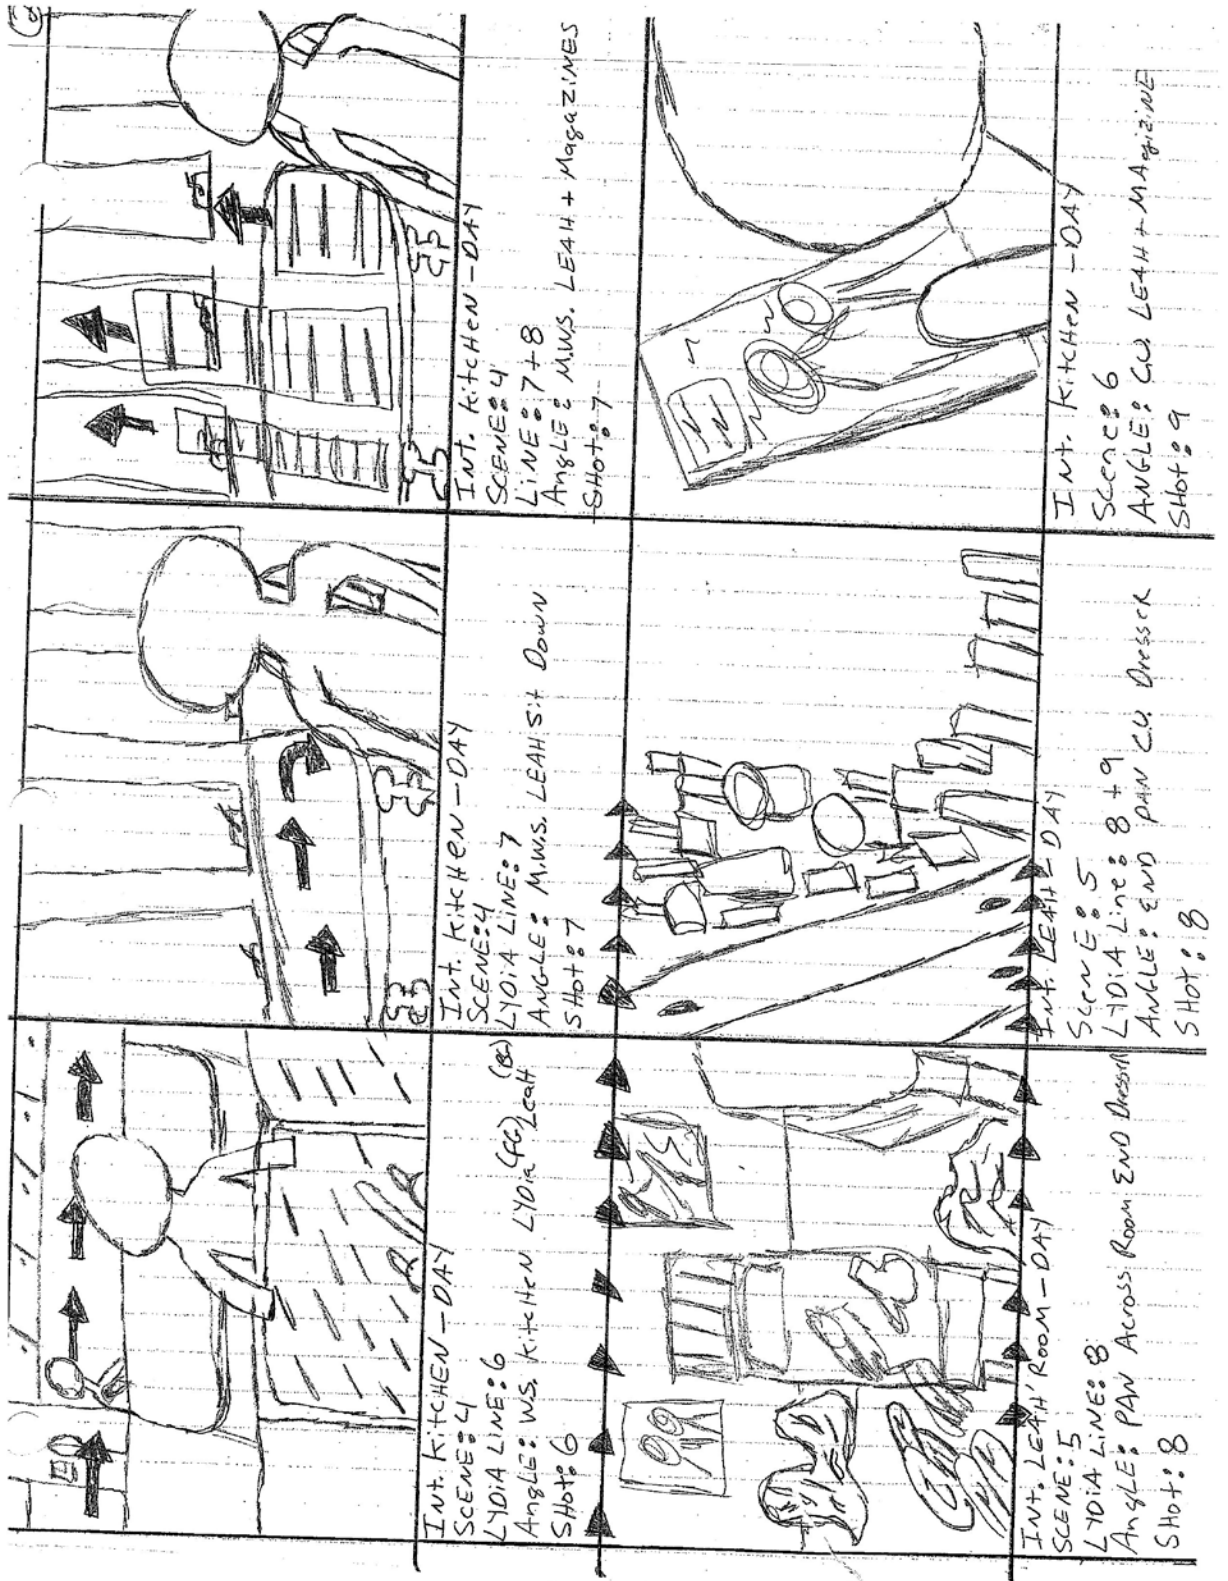 2
Int. KitcHEN - DAY
SCENE: 4
LYDiA LiNE: 6
AngLE: W.S. KitcHeN LYDia (FG) LeaH (BG)
SHot: 6
Int. KitcHen - DAY
SCENE: 4
LYDiA LiNE: 7
ANGLE: M.W.S. LEAH Sit Down
SHot: 7
Int. KitcHen - DAY
SCENE: 4
LiNE: 7 + 8
AngLE: M.W.S. LEAH + MagaZiNES
SHot: 7
99
Int. LEAH' Room - DAY
SCENE: 5
LYDiA LiNE: 8
AngLE: PAN Across Room END Dresser
SHot: 8
Int. LEAH - DAY
ScenE: 5
LYDiA Line: 8 + 9
AngLE: END PAN C.U. Dresser
SHot: 8
Int. KitcHEN - DAY
Scene: 6
ANGLE: C.U. LEAH + MAgiziNE
SHot: 9